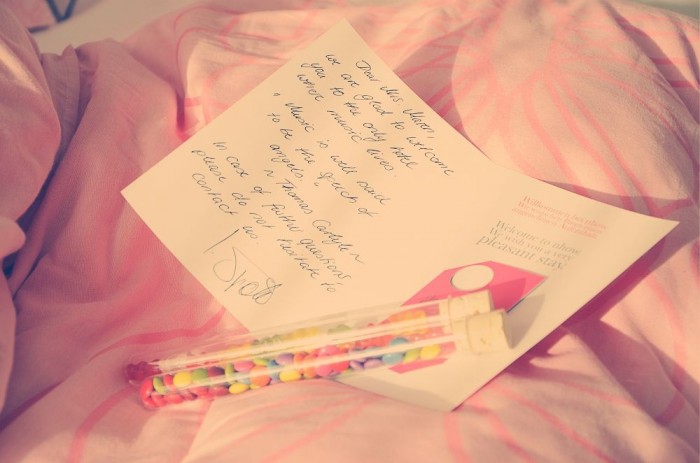 Dear Mrs. Maren,
we are glad to welcome
you to the only hotel
where music lives.
" Music is well said
to be the speech of
angels. "
~ Thomas Carlyle ~
In case of further questions
please do not hesitate to
contact us.
Willkommen bei nhow.
Welcome to nhow.
We wish you a very
pleasant stay.